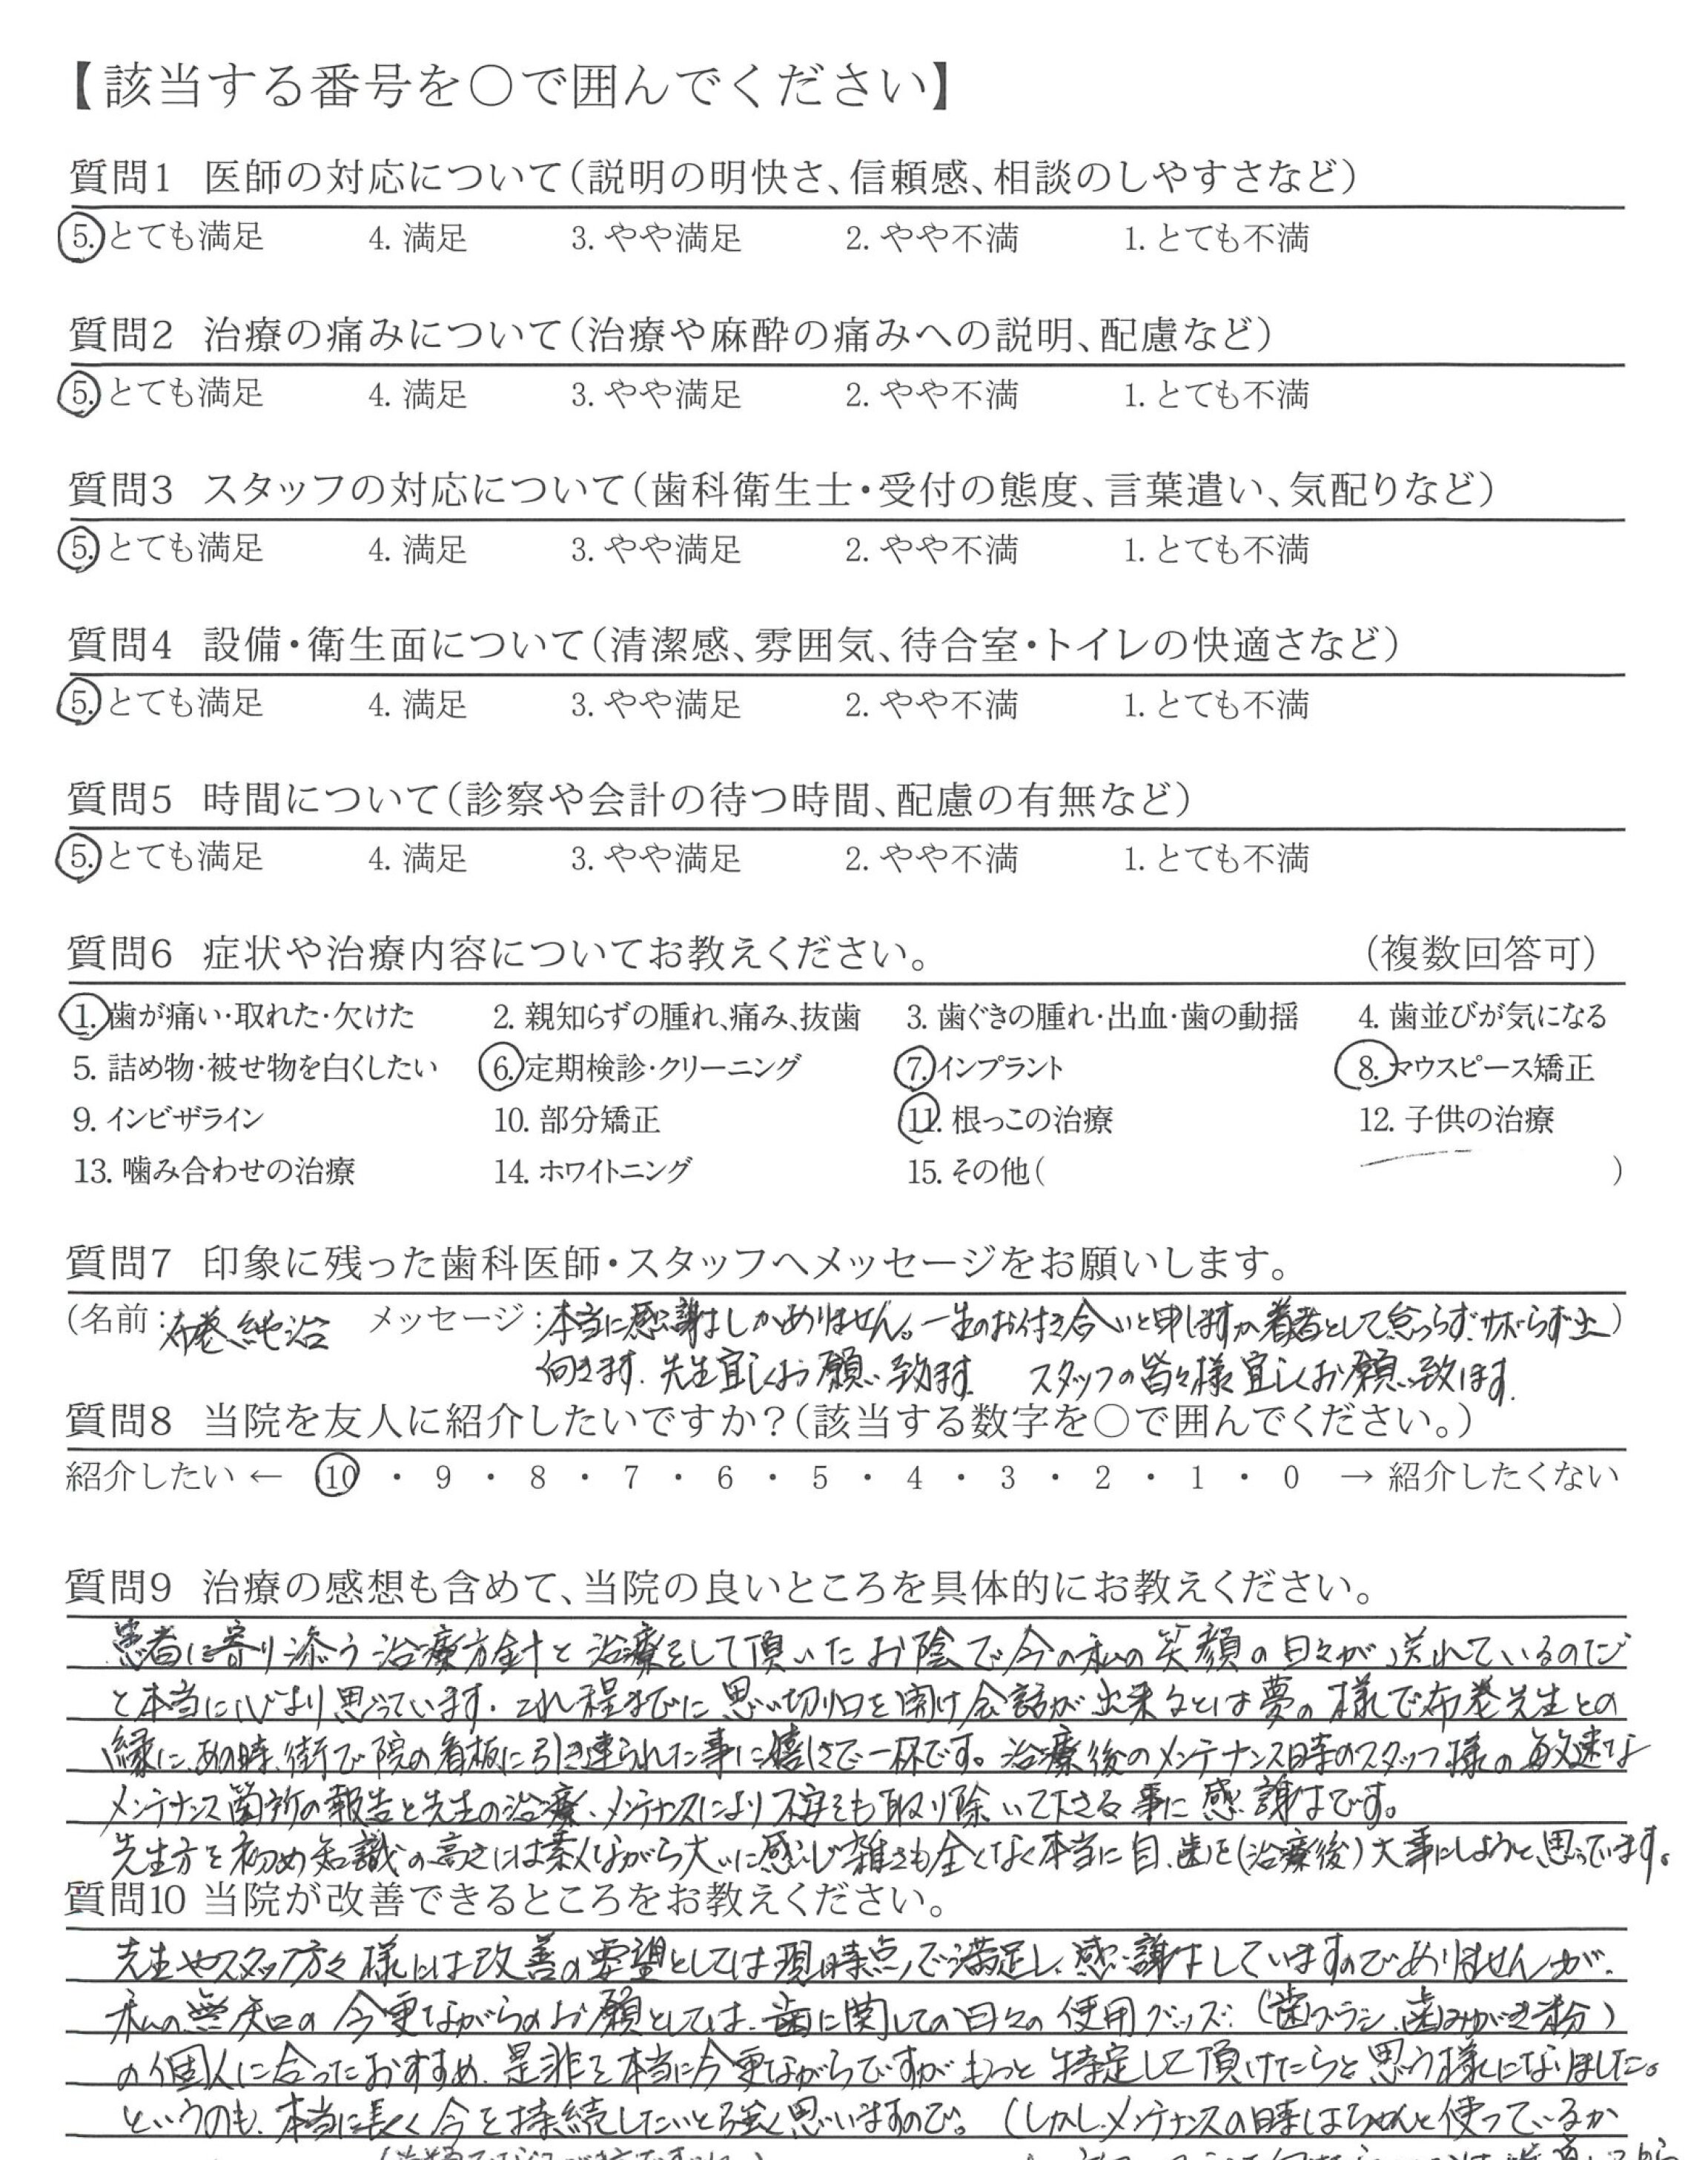 【該当する番号を○で囲んでください】
質問1 医師の対応について(説明の明快さ、信頼感、相談のしやすさなど)
5. とても満足 4. 満足 3. やや満足 2. やや不満 1. とても不満
質問2 治療の痛みについて(治療や麻酔の痛みへの説明、配慮など)
5. とても満足 4. 満足 3. やや満足 2. やや不満 1. とても不満
質問3 スタッフの対応について(歯科衛生士・受付の態度、言葉遣い、気配りなど)
5. とても満足 4. 満足 3. やや満足 2. やや不満 1. とても不満
質問4 設備・衛生面について(清潔感、雰囲気、待合室・トイレの快適さなど)
5. とても満足 4. 満足 3. やや満足 2. やや不満 1. とても不満
質問5 時間について(診察や会計の待つ時間、配慮の有無など)
5. とても満足 4. 満足 3. やや満足 2. やや不満 1. とても不満
質問6 症状や治療内容についてお教えください。 (複数回答可)
1. 歯が痛い・取れた・欠けた 2. 親知らずの腫れ、痛み、抜歯 3. 歯ぐきの腫れ・出血・歯の動揺 4. 歯並びが気になる
5. 詰め物・被せ物を白くしたい 6. 定期検診・クリーニング 7. インプラント 8. マウスピース矯正
9. インビザライン 10. 部分矯正 11. 根っこの治療 12. 子供の治療
13. 噛み合わせの治療 14. ホワイトニング 15. その他( )
質問7 印象に残った歯科医師・スタッフへメッセージをお願いします。
(名前:布巻純治 メッセージ:本当に感謝しかありません。一生のお付き合いと申しますか患者として怠らず、サボらず出)
向きます。先生宜しくお願い致ます。 スタッフの皆々様宜しくお願い致ます。
質問8 当院を友人に紹介したいですか?(該当する数字を○で囲んでください。)
紹介したい ← 10 ・ 9 ・ 8 ・ 7 ・ 6 ・ 5 ・ 4 ・ 3 ・ 2 ・ 1 ・ 0 → 紹介したくない
質問9 治療の感想も含めて、当院の良いところを具体的にお教えください。
患者に寄り添う治療方針と治療をして頂いたお陰で今の私の笑顔の日々が送れているのだ
と本当に心より思っています。これ程までに思い切り口を開け会話が出来るとは夢の様で布巻先生との
縁に、あの時、街で院の看板に引き連られた事に嬉しさで一杯です。治療後のメンテナンス時のスタッフ様の敏速な
メンテナンス箇所の報告と先生の治療、メンテナンスにより不安をも取り除いて下さる事に感謝です。
先生方を初め知識の高さには素人ながら大いに感じ雑さも全くなく本当に自歯を(治療後)大事にしようと思っています。
質問10 当院が改善できるところをお教えください。
先生やスタッフ方々様には改善の要望としては現時点で満足し、感謝していますのでありませんが、
私の無知の今更ながらのお願としては、歯に関しての日々の使用グッズ(歯ブラシ、歯みがき粉)
の個人に合ったおすすめ、是非を本当に今更ながらですがもっと特定して頂けたらと思う様になりました。
というのも、本当に長く今を持続したいと強く思いますので。(しかしメンテナンスの時はちゃんと使っているか